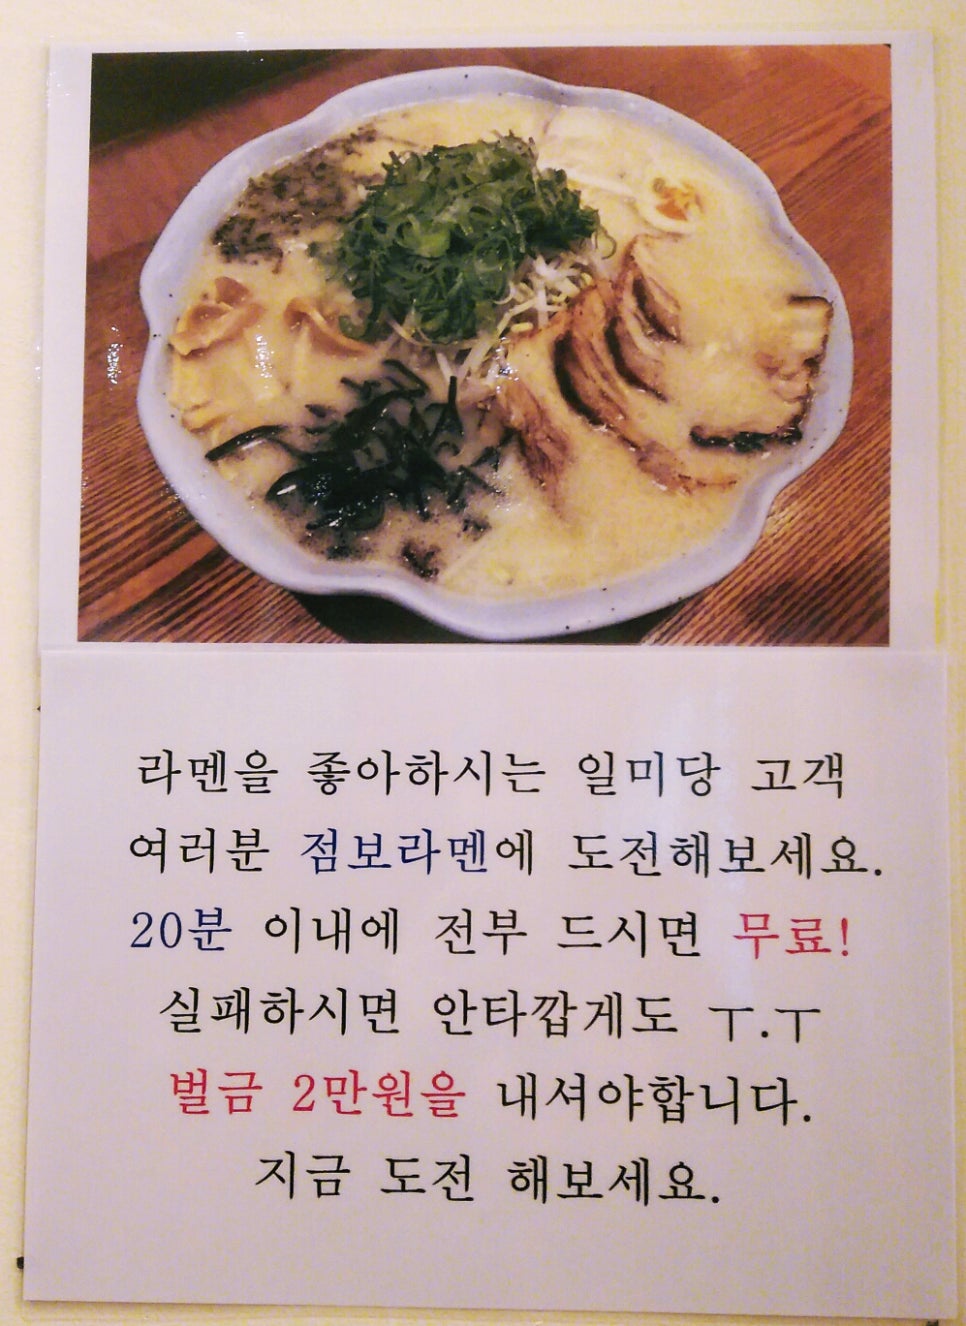 라멘을 좋아하시는 일미당 고객
여러분 점보라멘에 도전해보세요.
20분 이내에 전부 드시면 무료!
실패하시면 안타깝게도 ㅜ.ㅜ
벌금 2만원을 내셔야합니다.
지금 도전 해보세요.